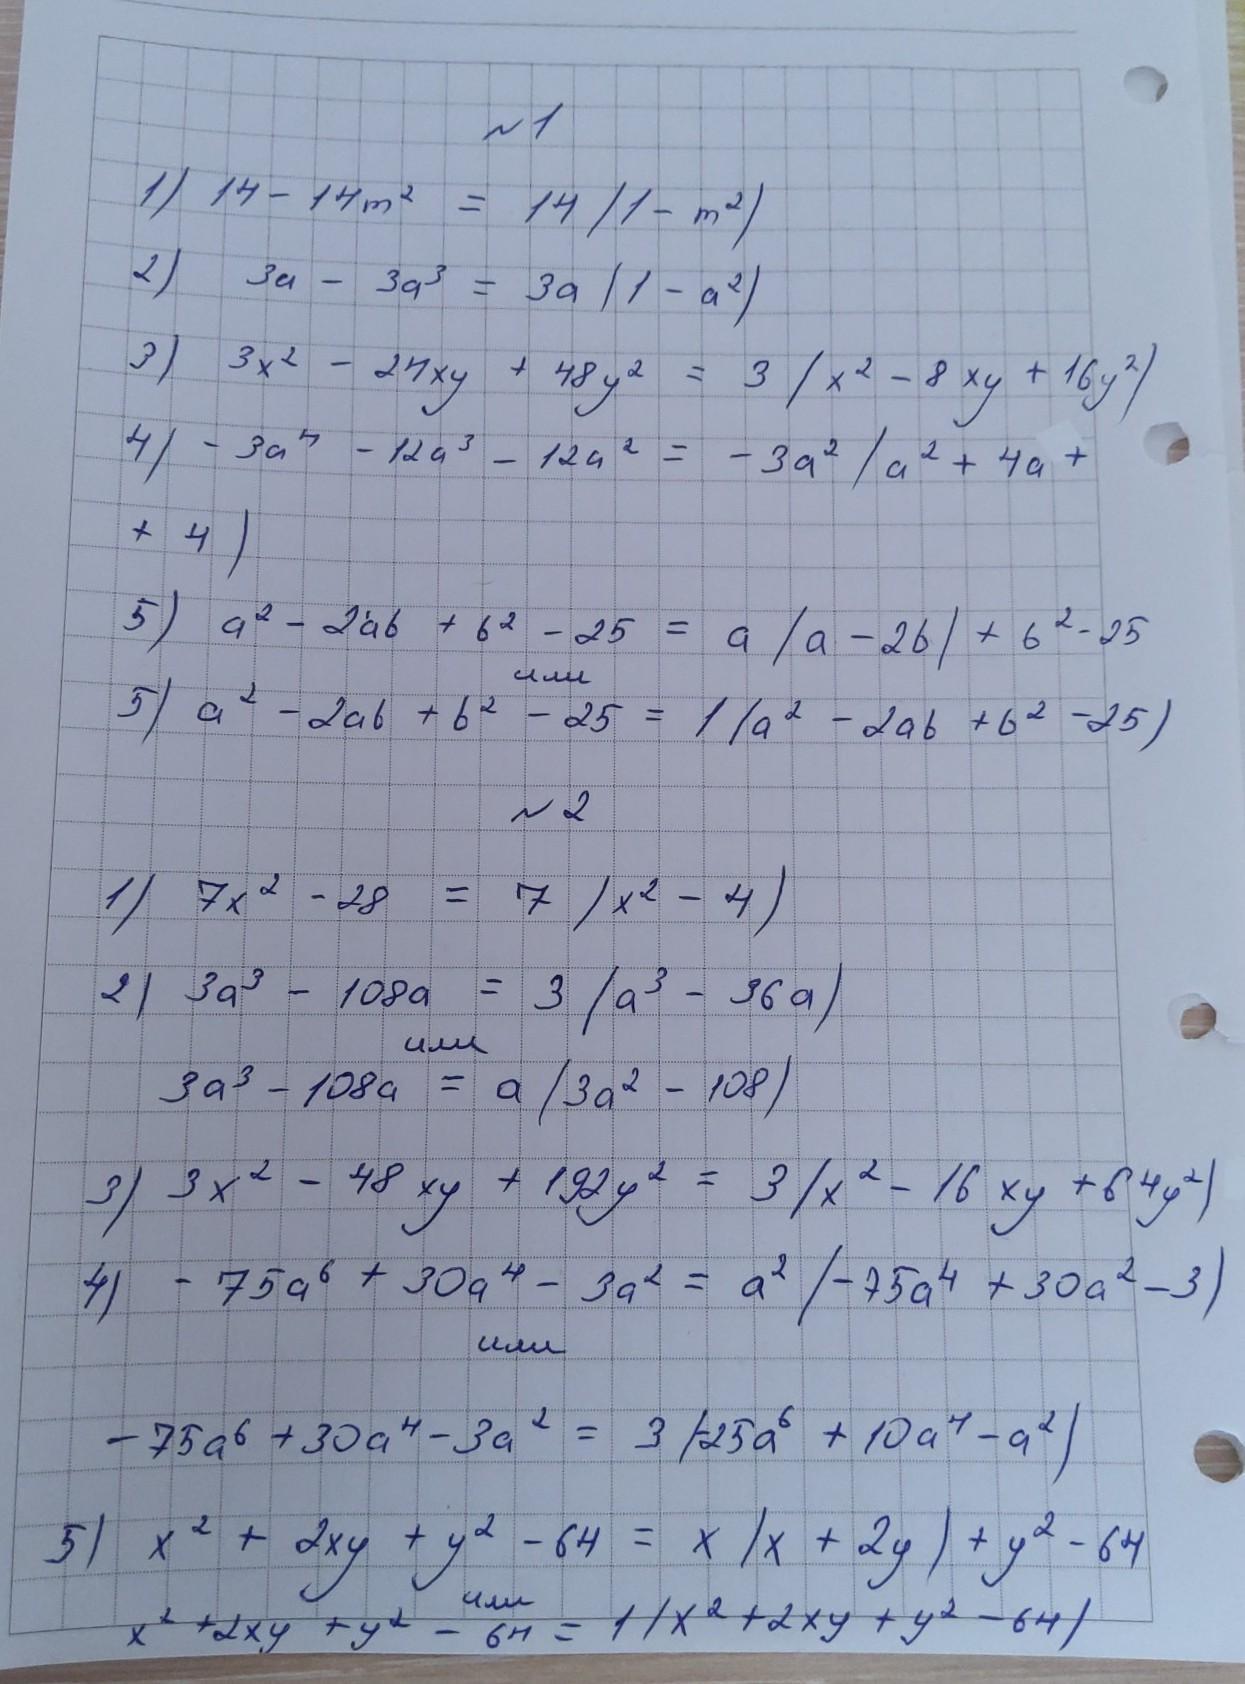 №1
1) 14 - 14m² = 14 (1 - m²)
2) 3a - 3a³ = 3a (1 - a²)
3) 3x² - 24xy + 48y² = 3 (x² - 8xy + 16y²)
4) -3a⁴ - 12a³ - 12a² = -3a² (a² + 4a +
+ 4)
5) a² - 2ab + b² - 25 = a (a - 2b) + b² - 25
или
5) a² - 2ab + b² - 25 = 1 (a² - 2ab + b² - 25)
№2
1) 7x² - 28 = 7 (x² - 4)
2) 3a³ - 108a = 3 (a³ - 36a)
или
3a³ - 108a = a (3a² - 108)
3) 3x² - 48xy + 192y² = 3 (x² - 16xy + 64y²)
4) -75a⁶ + 30a⁴ - 3a² = a² (-75a⁴ + 30a² - 3)
или
-75a⁶ + 30a⁴ - 3a² = 3 (-25a⁶ + 10a⁴ - a²)
5) x² + 2xy + y² - 64 = x (x + 2y) + y² - 64
или
x² + 2xy + y² - 64 = 1 (x² + 2xy + y² - 64)